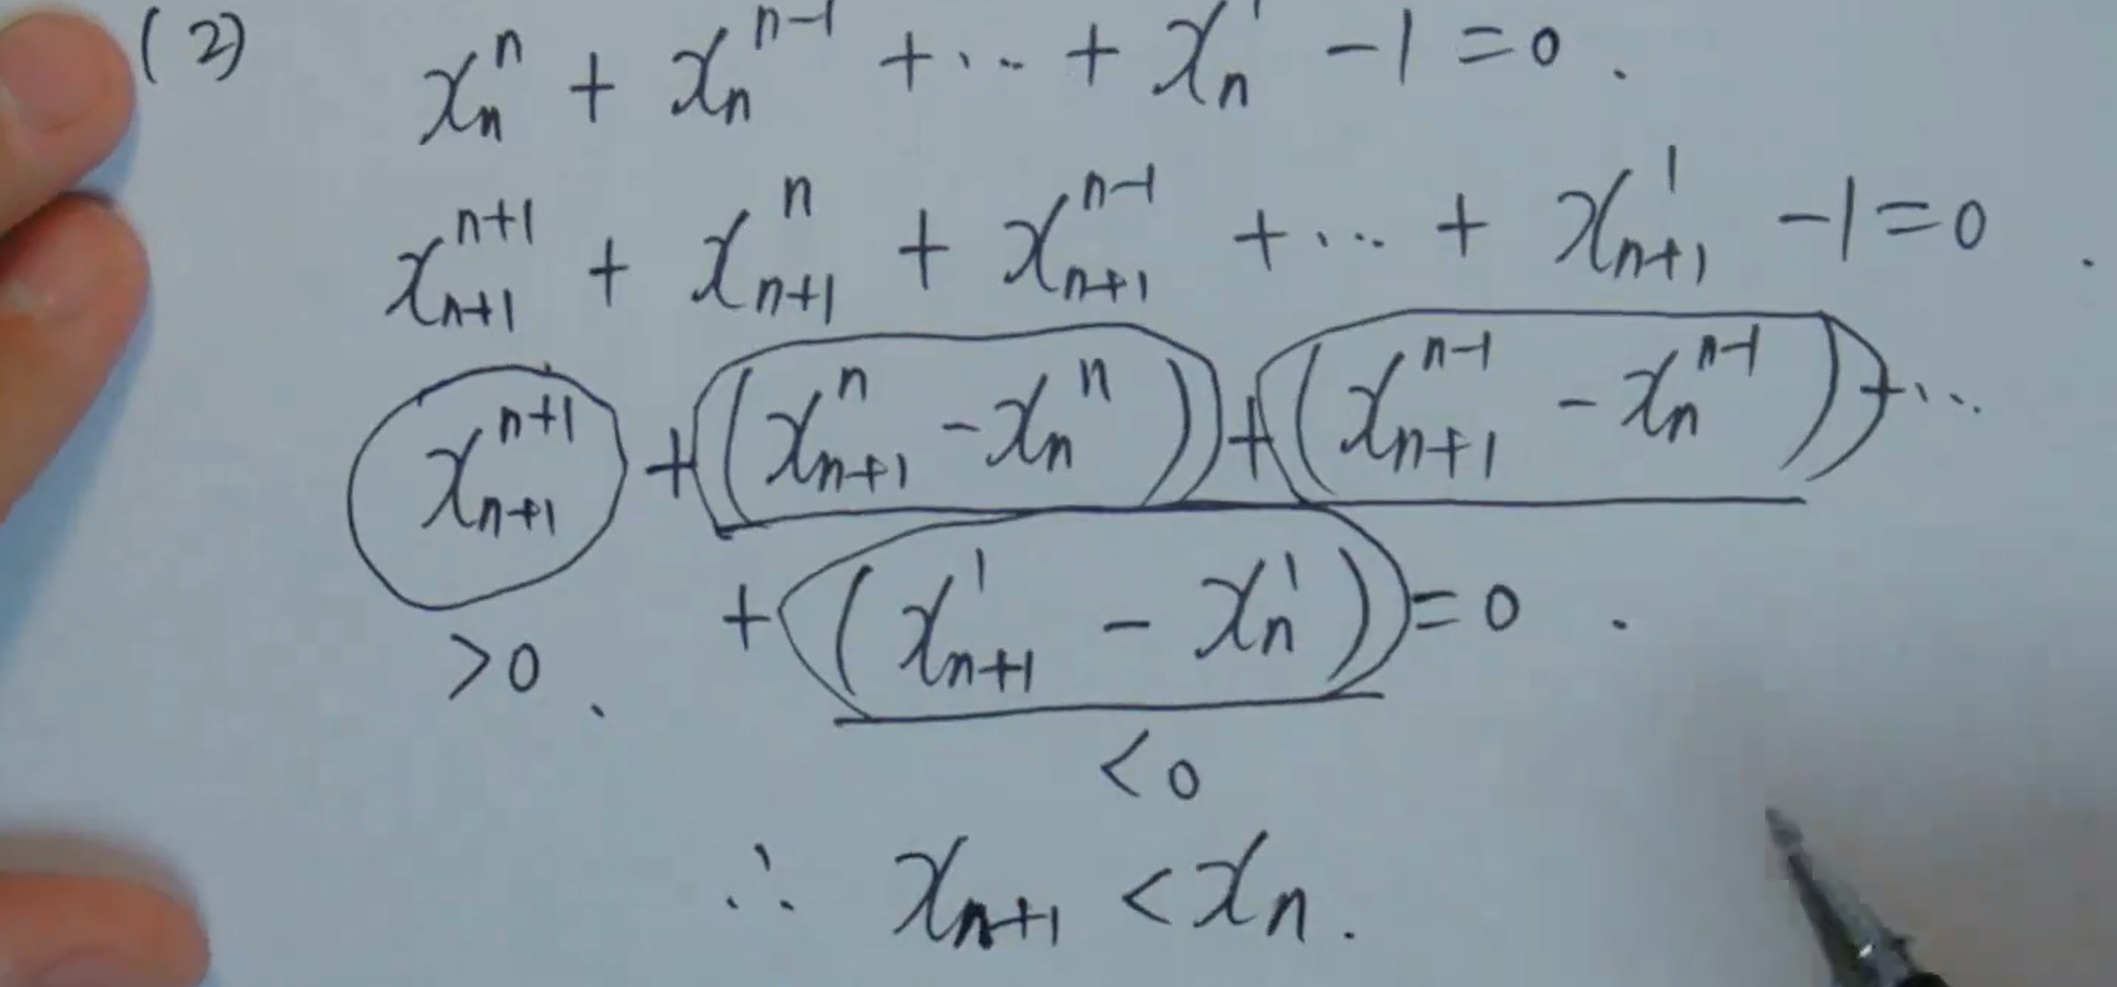 (2) xₙⁿ + xₙⁿ⁻¹ + ... + xₙ¹ - 1 = 0.
xₙ₊₁ⁿ⁺¹ + xₙ₊₁ⁿ + xₙ₊₁ⁿ⁻¹ + ... + xₙ₊₁¹ - 1 = 0.
xₙ₊₁ⁿ⁺¹ + (xₙ₊₁ⁿ - xₙⁿ) + (xₙ₊₁ⁿ⁻¹ - xₙⁿ⁻¹) + ...
+ (xₙ₊₁¹ - xₙ¹) = 0.
>0.
<0
∴ xₙ₊₁ < xₙ.